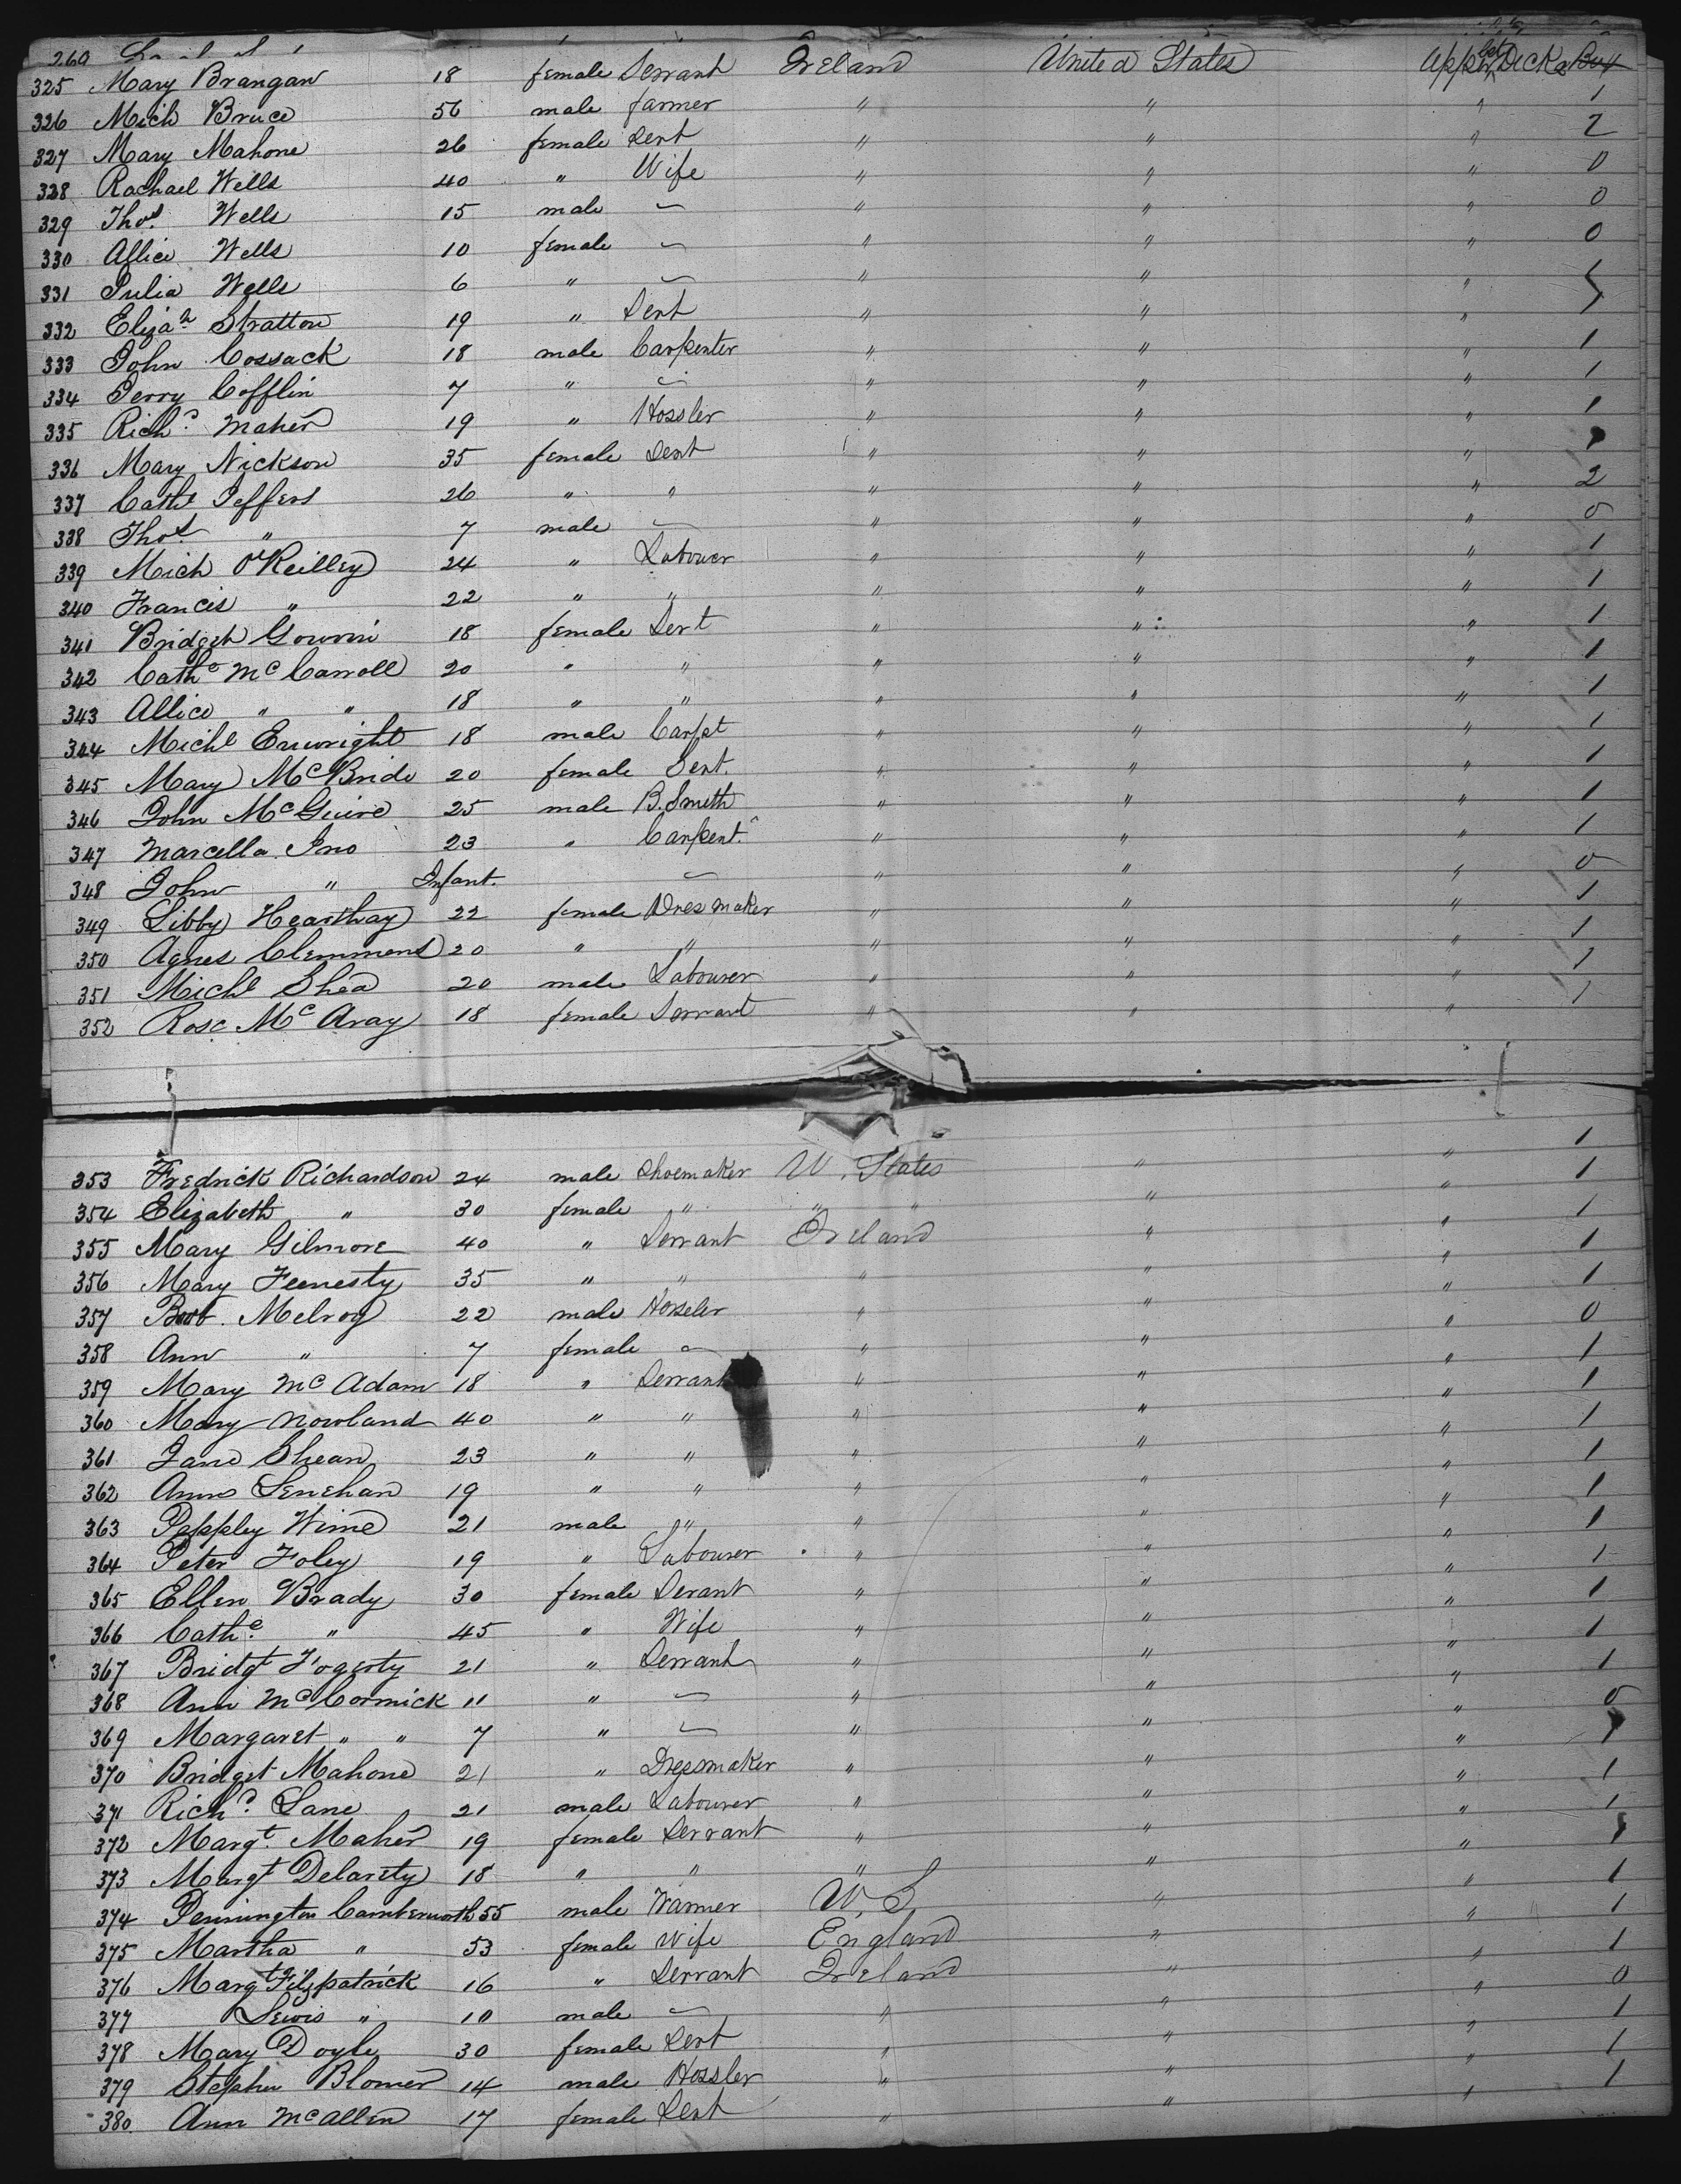 260
325 Mary Brangan 18 female Servant Ireland United States Upper bet Decks Box
326 Mich Bruce 56 male farmer " " " 1
327 Mary Mahone 26 female Sert " " " 2
328 Rachael Wells 40 " Wife " " " 0
329 Thos. Wells 15 male — " " " 0
330 Allice Wells 10 female — " " " 0
331 Julia Wells 6 " — " " "
332 Elizah Stratton 19 " Sert " " "
333 John Cossack 18 male Carpenter " " " 1
334 Perry Cofflin 7 " — " " " 1
335 Richd Maher 19 " Hossler " " " 1
336 Mary Nickson 35 female Sert " " "
337 Cathe Jeffers 26 " " " " " 2
338 Thos " 7 male — " " " 0
339 Mich O'Reilley 24 " Labouer " " " 1
340 Francis " 22 " " " " " 1
341 Bridget Gowrin 18 female Sert " " " 1
342 Cathe McCarroll 20 " " " " " 1
343 Allice " " 18 " " " " " 1
344 Michl Enwright 18 male Carpt " " " 1
345 Mary McBride 20 female Sert. " " " 1
346 John McGuire 25 male B. Smith " " " 1
347 Marcella Ino 23 " Carpent. " " " 1
348 John " Infant. — " " " 0
349 Libby Hearthay 22 female Dres maker " " " 1
350 Agnes Clemmens 20 " " " " " 1
351 Michl Shea 20 male Labourer " " " 1
352 Rose McAray 18 female Servant " " " 1
353 Fredrick Richardson 24 male Shoemaker U. States " " 1
354 Elizabeth " 30 female " " " " " 1
355 Mary Gilmore 40 " Servant Ireland " " 1
356 Mary Feenesty 35 " " " " " 1
357 Melroy 22 male Hosseler " " " 1
358 Ann " 7 female — " " " 0
359 Mary McAdam 18 " Servant " " " 1
360 Mary Nowland 40 " " " " " 1
361 Jane Shean 23 " " " " " 1
362 Anns Lenehan 19 " " " " " 1
363 Peppley Wime 21 male " " " " 1
364 Peter Foley 19 " Labourer " " " 1
365 Ellen Brady 30 female Serant " " " 1
366 Cathe. " 45 " Wife " " " 1
367 Bridgt Fogerty 21 " Servant " " " 1
368 Ann McCormick 11 " — " " " 1
369 Margaret " " 7 " — " " " 0
370 Bridget Mahone 21 " Dressmaker " " " 1
371 Richd. Lane 21 male Labourer " " " 1
372 Margt. Maher 19 female Servant " " " 1
373 Margt Delarety 18 " " " " " 1
374 Pennington Camberworth 55 male Farmer U. S " " 1
375 Martha " 53 female Wife England " " 1
376 Margt Fitzpatrick 16 " Servant Ireland " " 1
377 Lewis " 10 male — " " " 0
378 Mary Doyle 30 female Sert " " " 1
379 Stephen Blomer 14 male Hossler " " " 1
380 Ann McAllen 17 female Sert " " " 1